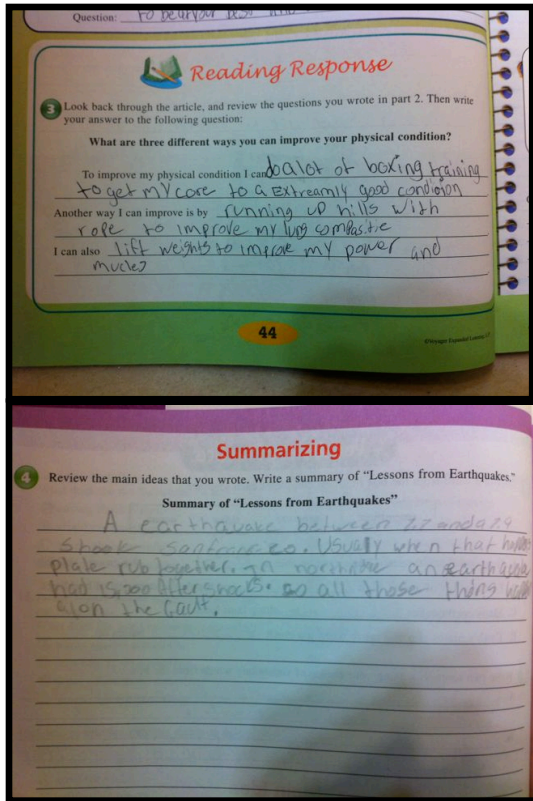 Question: to beat your best
Reading Response
3 Look back through the article, and review the questions you wrote in part 2. Then write
your answer to the following question:
What are three different ways you can improve your physical condition?
To improve my physical condition I can do alot of boxing training
to get my core to a Extreamly good condioion
Another way I can improve is by running up hills with
rope to improve my lung compasitie
I can also lift weights to improve my power and
mucles
44
Summarizing
4 Review the main ideas that you wrote. Write a summary of "Lessons from Earthquakes."
Summary of "Lessons from Earthquakes"
A earthquake between 7.7 and a 7.9
shook sanfrancico. Usually when that
plate rub together. In an
had 15,200 Aftershocks. so all those thing
alon the fault.